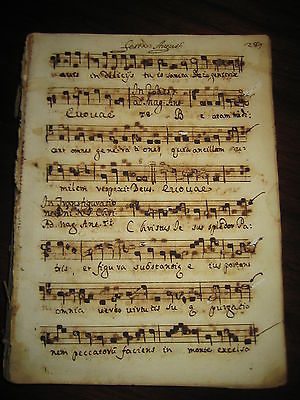 Festa Augusti
varis in deliciis tuis sancta dei genitrix
In Sabbato
ad Mag. Ant.
Euouae te B eatam me di
cent omnes genera tiones quia ancillam hu
milem respexit Deus. Euouae
In Transfiguratio
ne Dni N. I. Chri
Ad Mag. Ant. VII Christus Jesus splendor Pa
tris et figura substantiæ eius portans
omnia verbo virtutis suæ purgatio
nem peccatorum faciens in monte excelso